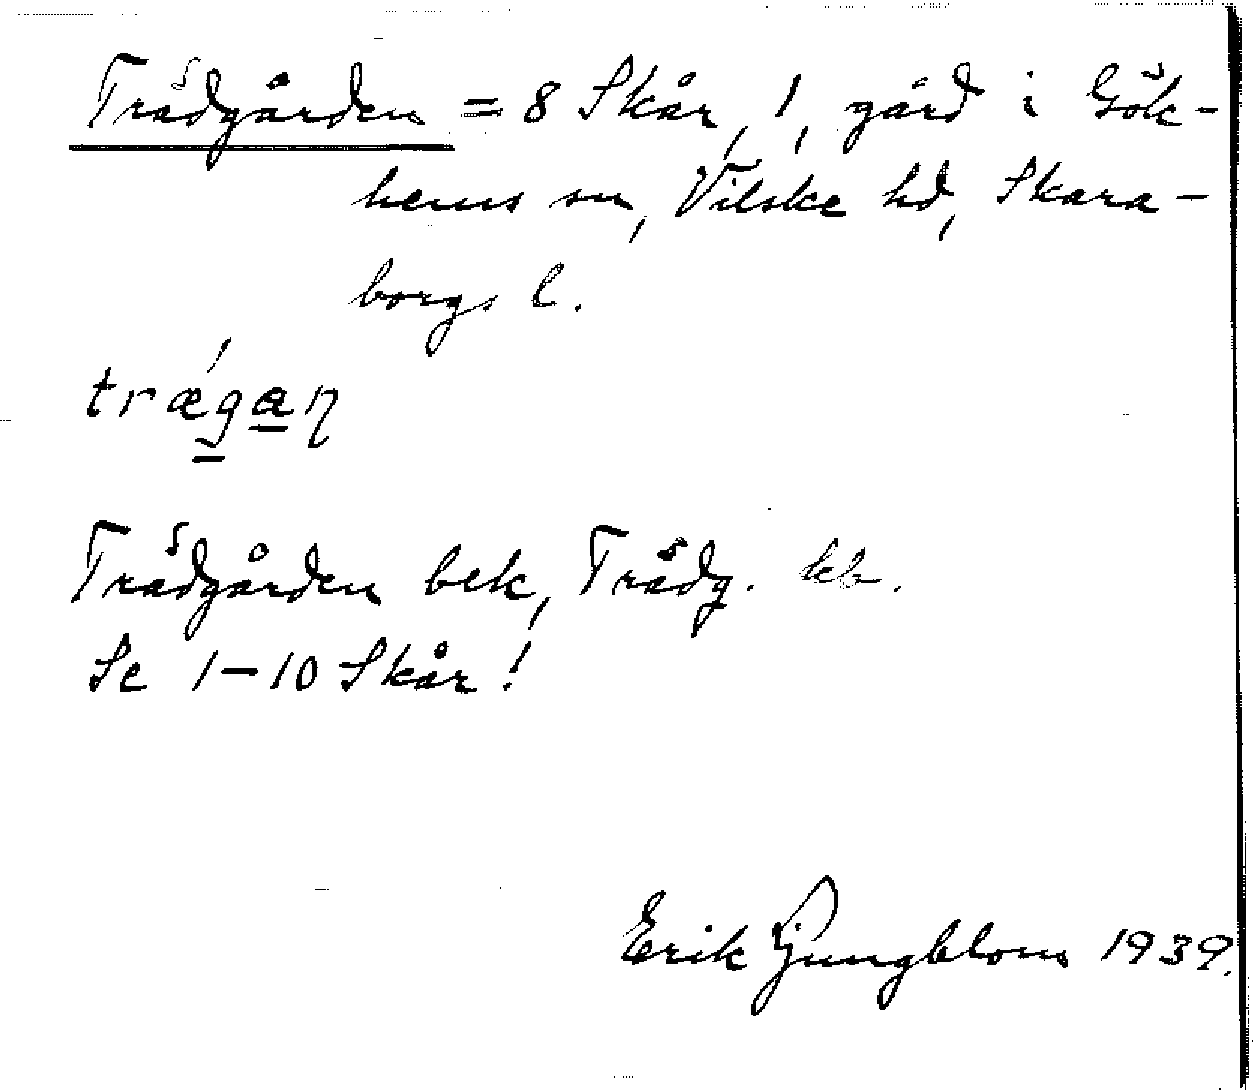 Trädgården = 8 Skår, 1, gård i Gök-
hems sn, Vilske hd, Skara-
borgs l.
trǽgan
Trädgården bek, Trädg. kb.
Se 1-10 Skår!
Erik Ljungblom 1939.